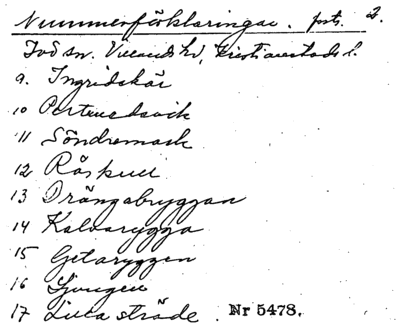 Nummerförklaringar. forts. 2.
Ivö sn. Villands hd, Kristianstads l.
9. Ingridskär
10 Portensdovik
11 Söndremark
12 Råskull
13 Drängabryggan
14 Kalvarygga
15 Getaryggen
16 Ljungen
17 Lilla sträde. Nr 5478.